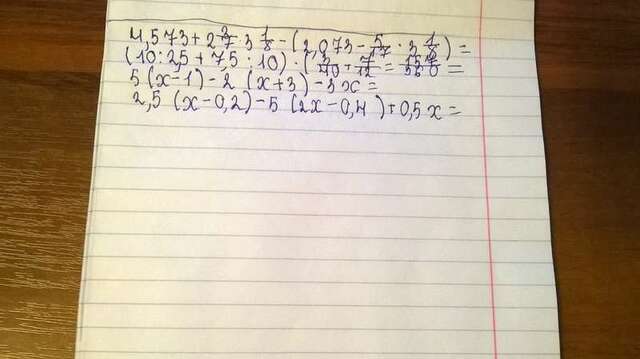 4,573 + 2 3/7 · 3 1/8 - (2,073 - 5/7 · 3 1/8) =
(10 : 25 + 75 : 10) : (3/40 + 7/12 =
5 (x - 1) - 2 (x + 3) - 3x =
2,5 (x - 0,2) - 5 (2x - 0,4) + 0,5x =